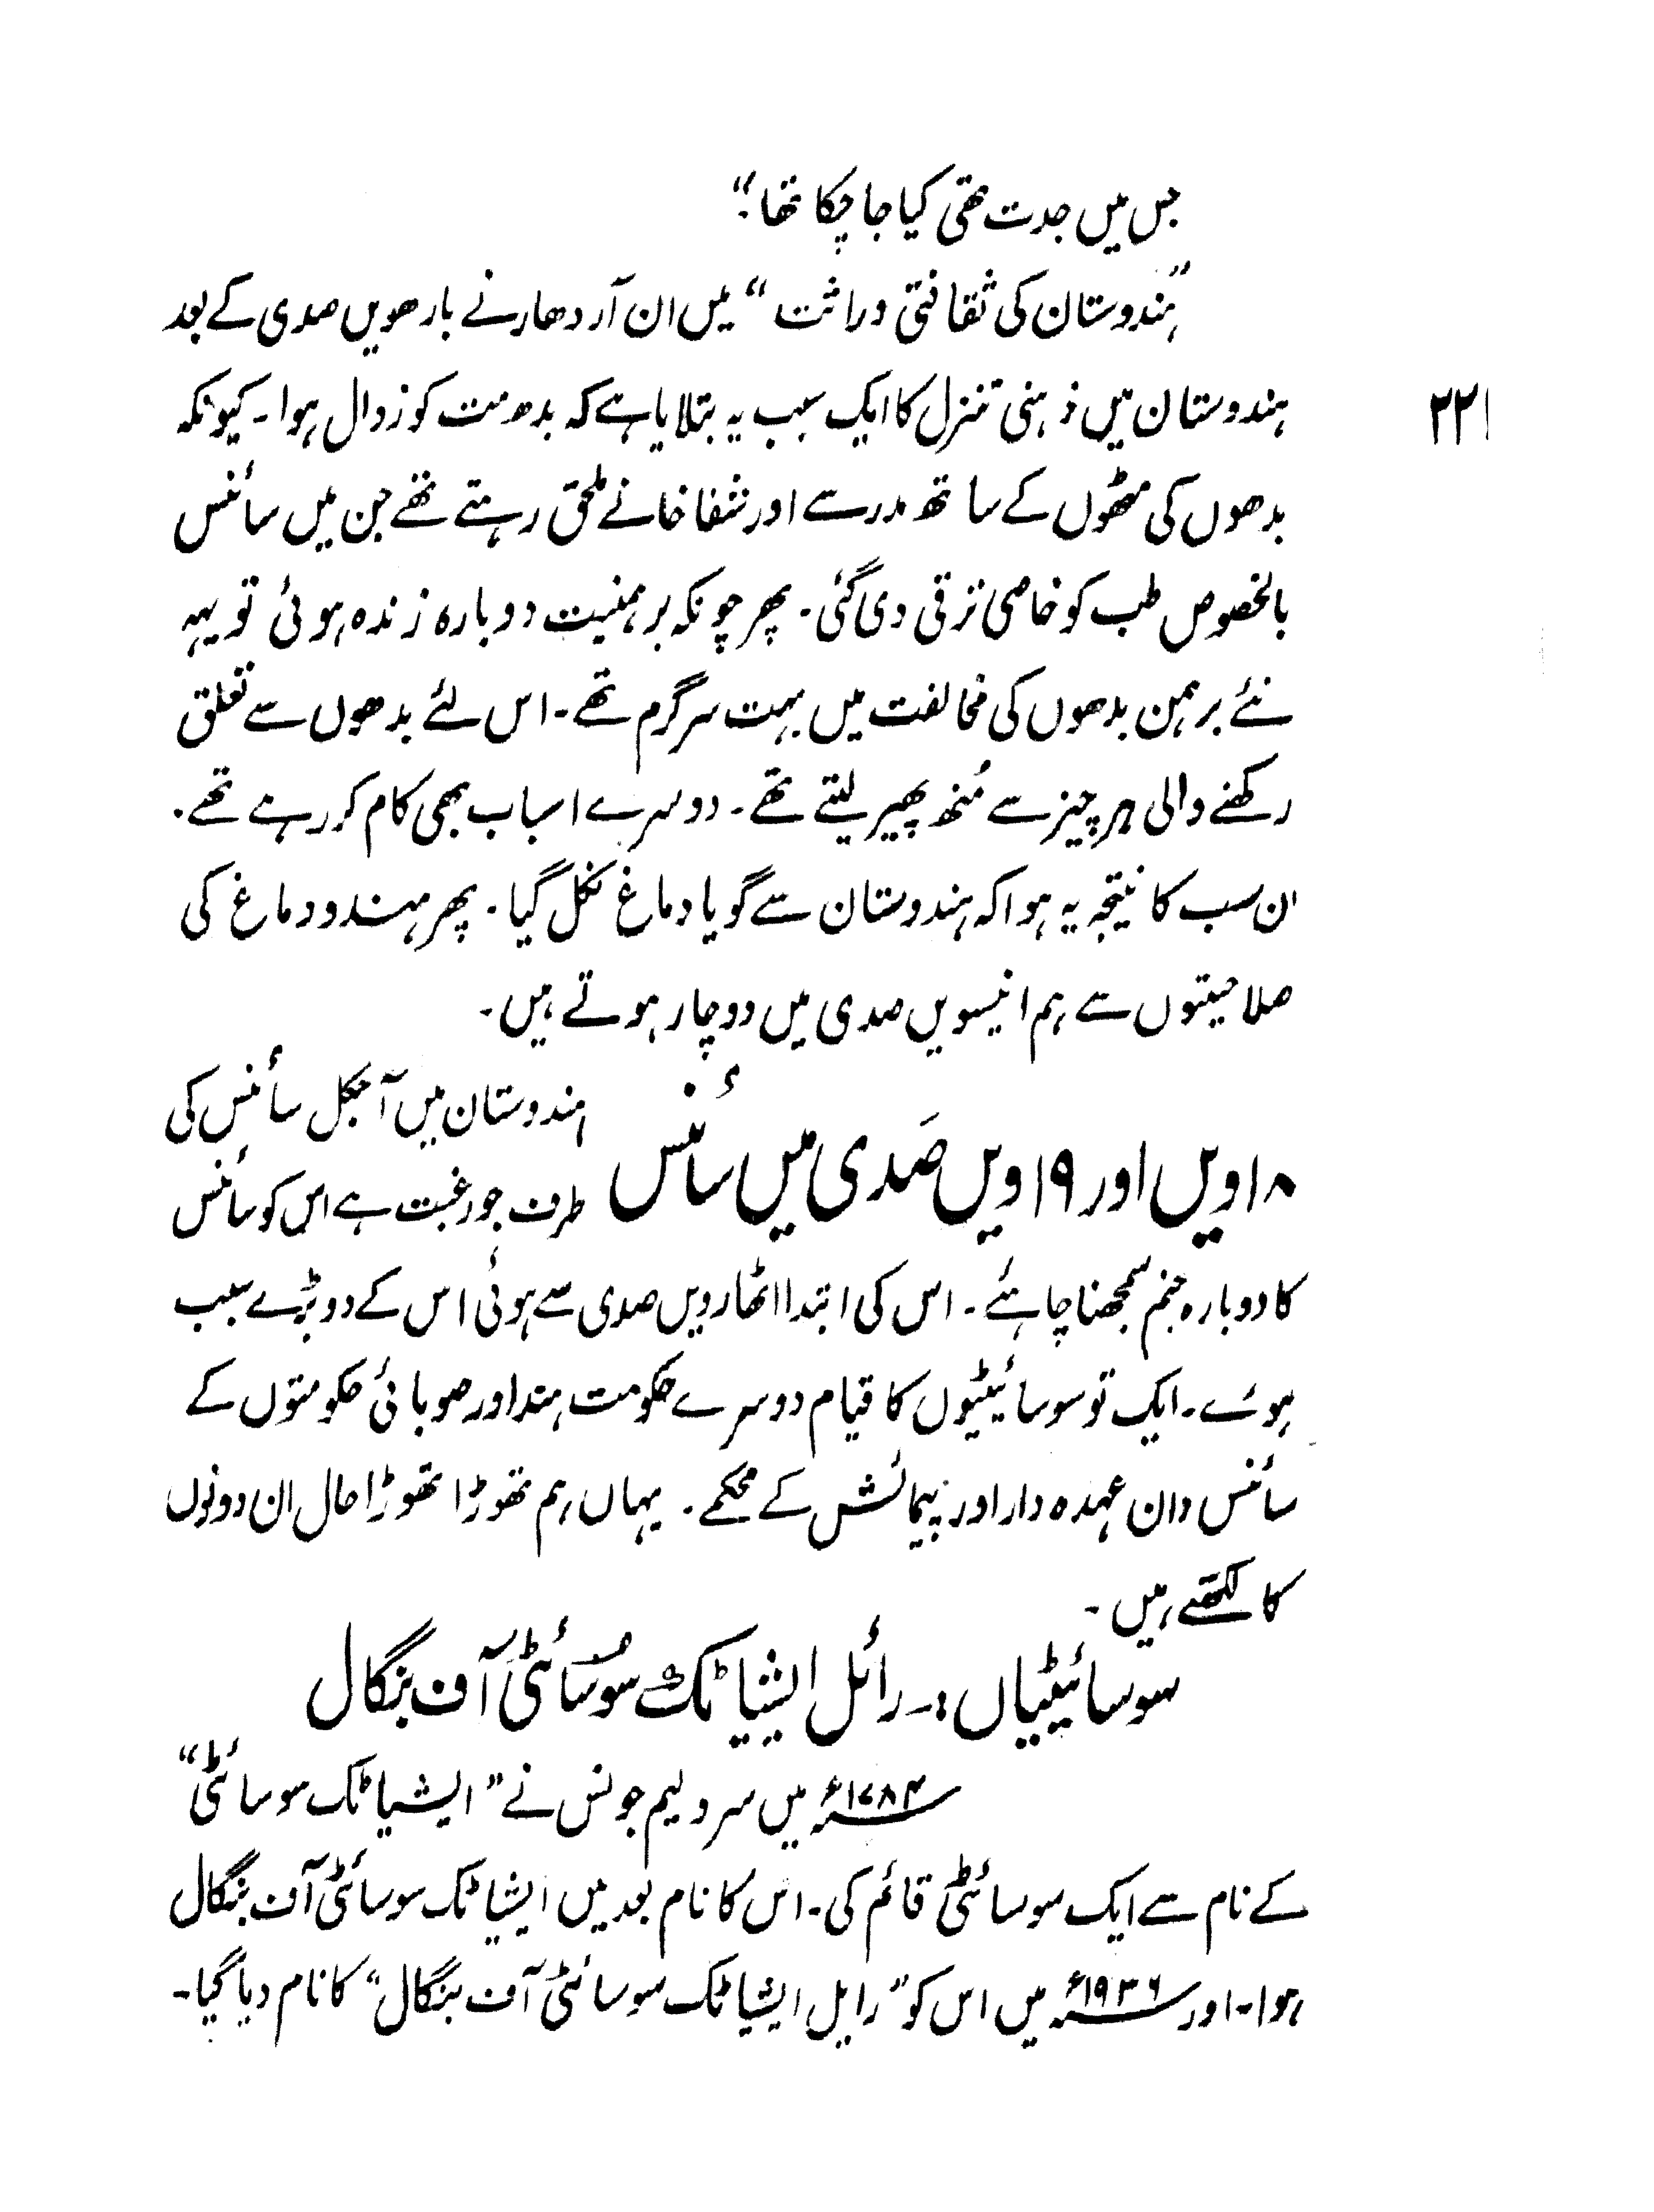 جس میں جدت تھی کیا جا چکا تھا۔“
”ہندوستان کی ثقافتی وراثت“ میں ان آر دھار نے بارھویں صدی کے بعد
۲۲۱
ہندوستان میں ذہنی تنزل کا ایک سبب یہ بتلایا ہے کہ بدھ مت کو زوال ہوا۔ کیونکہ
بدھوں کی مٹھوں کے ساتھ مدرسے اور شفاخانے ملحق رہتے تھے جن میں سائنس
بالخصوص طب کو خاصی ترقی دی گئی۔ پھر چونکہ برہمنیت دوبارہ زندہ ہوئی تو یہہ
نئے برہمن بدھوں کی مخالفت میں بہت سرگرم تھے۔ اس لئے بدھوں سے تعلق
رکھنے والی ہر چیز سے مُنھ پھیر لیتے تھے۔ دوسرے اسباب بھی کام کر رہے تھے۔
ان سب کا نیتجہ یہ ہوا کہ ہندوستان سے گویا دماغ نکل گیا۔ پھر ہندو دماغ کی
صلاحیتوں سے ہم انیسویں صدی میں دوچار ہوتے ہیں۔
۱۸ویں اور ۱۹ویں صَدی میں سائنس
ہندوستان میں آجکل سائنس کی
طرف جو رغبت ہے اس کو سائنس
کا دوبارہ جنم سمجھنا چاہئے۔ اس کی ابتدا اٹھارویں صدی سے ہوئی اس کے دو بڑے سبب
ہوئے۔ ایک تو سوسائیٹیوں کا قیام دوسرے حکومت ہند اور صوبائی حکومتوں کے
سائنس دان عہدہ دار اور پیمائش کے محکمے۔ یہاں ہم تھوڑا تھوڑا حال ان دونوں
کا لکھتے ہیں۔
سوسائیٹیاں :۔ رائل ایشیاٹک سُوسَائٹی آف بنگال
۱۷۸۴ء میں سر ولیم جونس نے ”ایشیاٹک سوسائٹی“
کے نام سے ایک سوسائٹی قائم کی۔ اس کا نام بعد میں ایشیاٹک سوسائٹی آف بنگال
ہوا۔ اور ۱۹۳۶ء میں اس کو ”رایل ایشیاٹک سوسائٹی آف بنگال“ کا نام دیا گیا۔